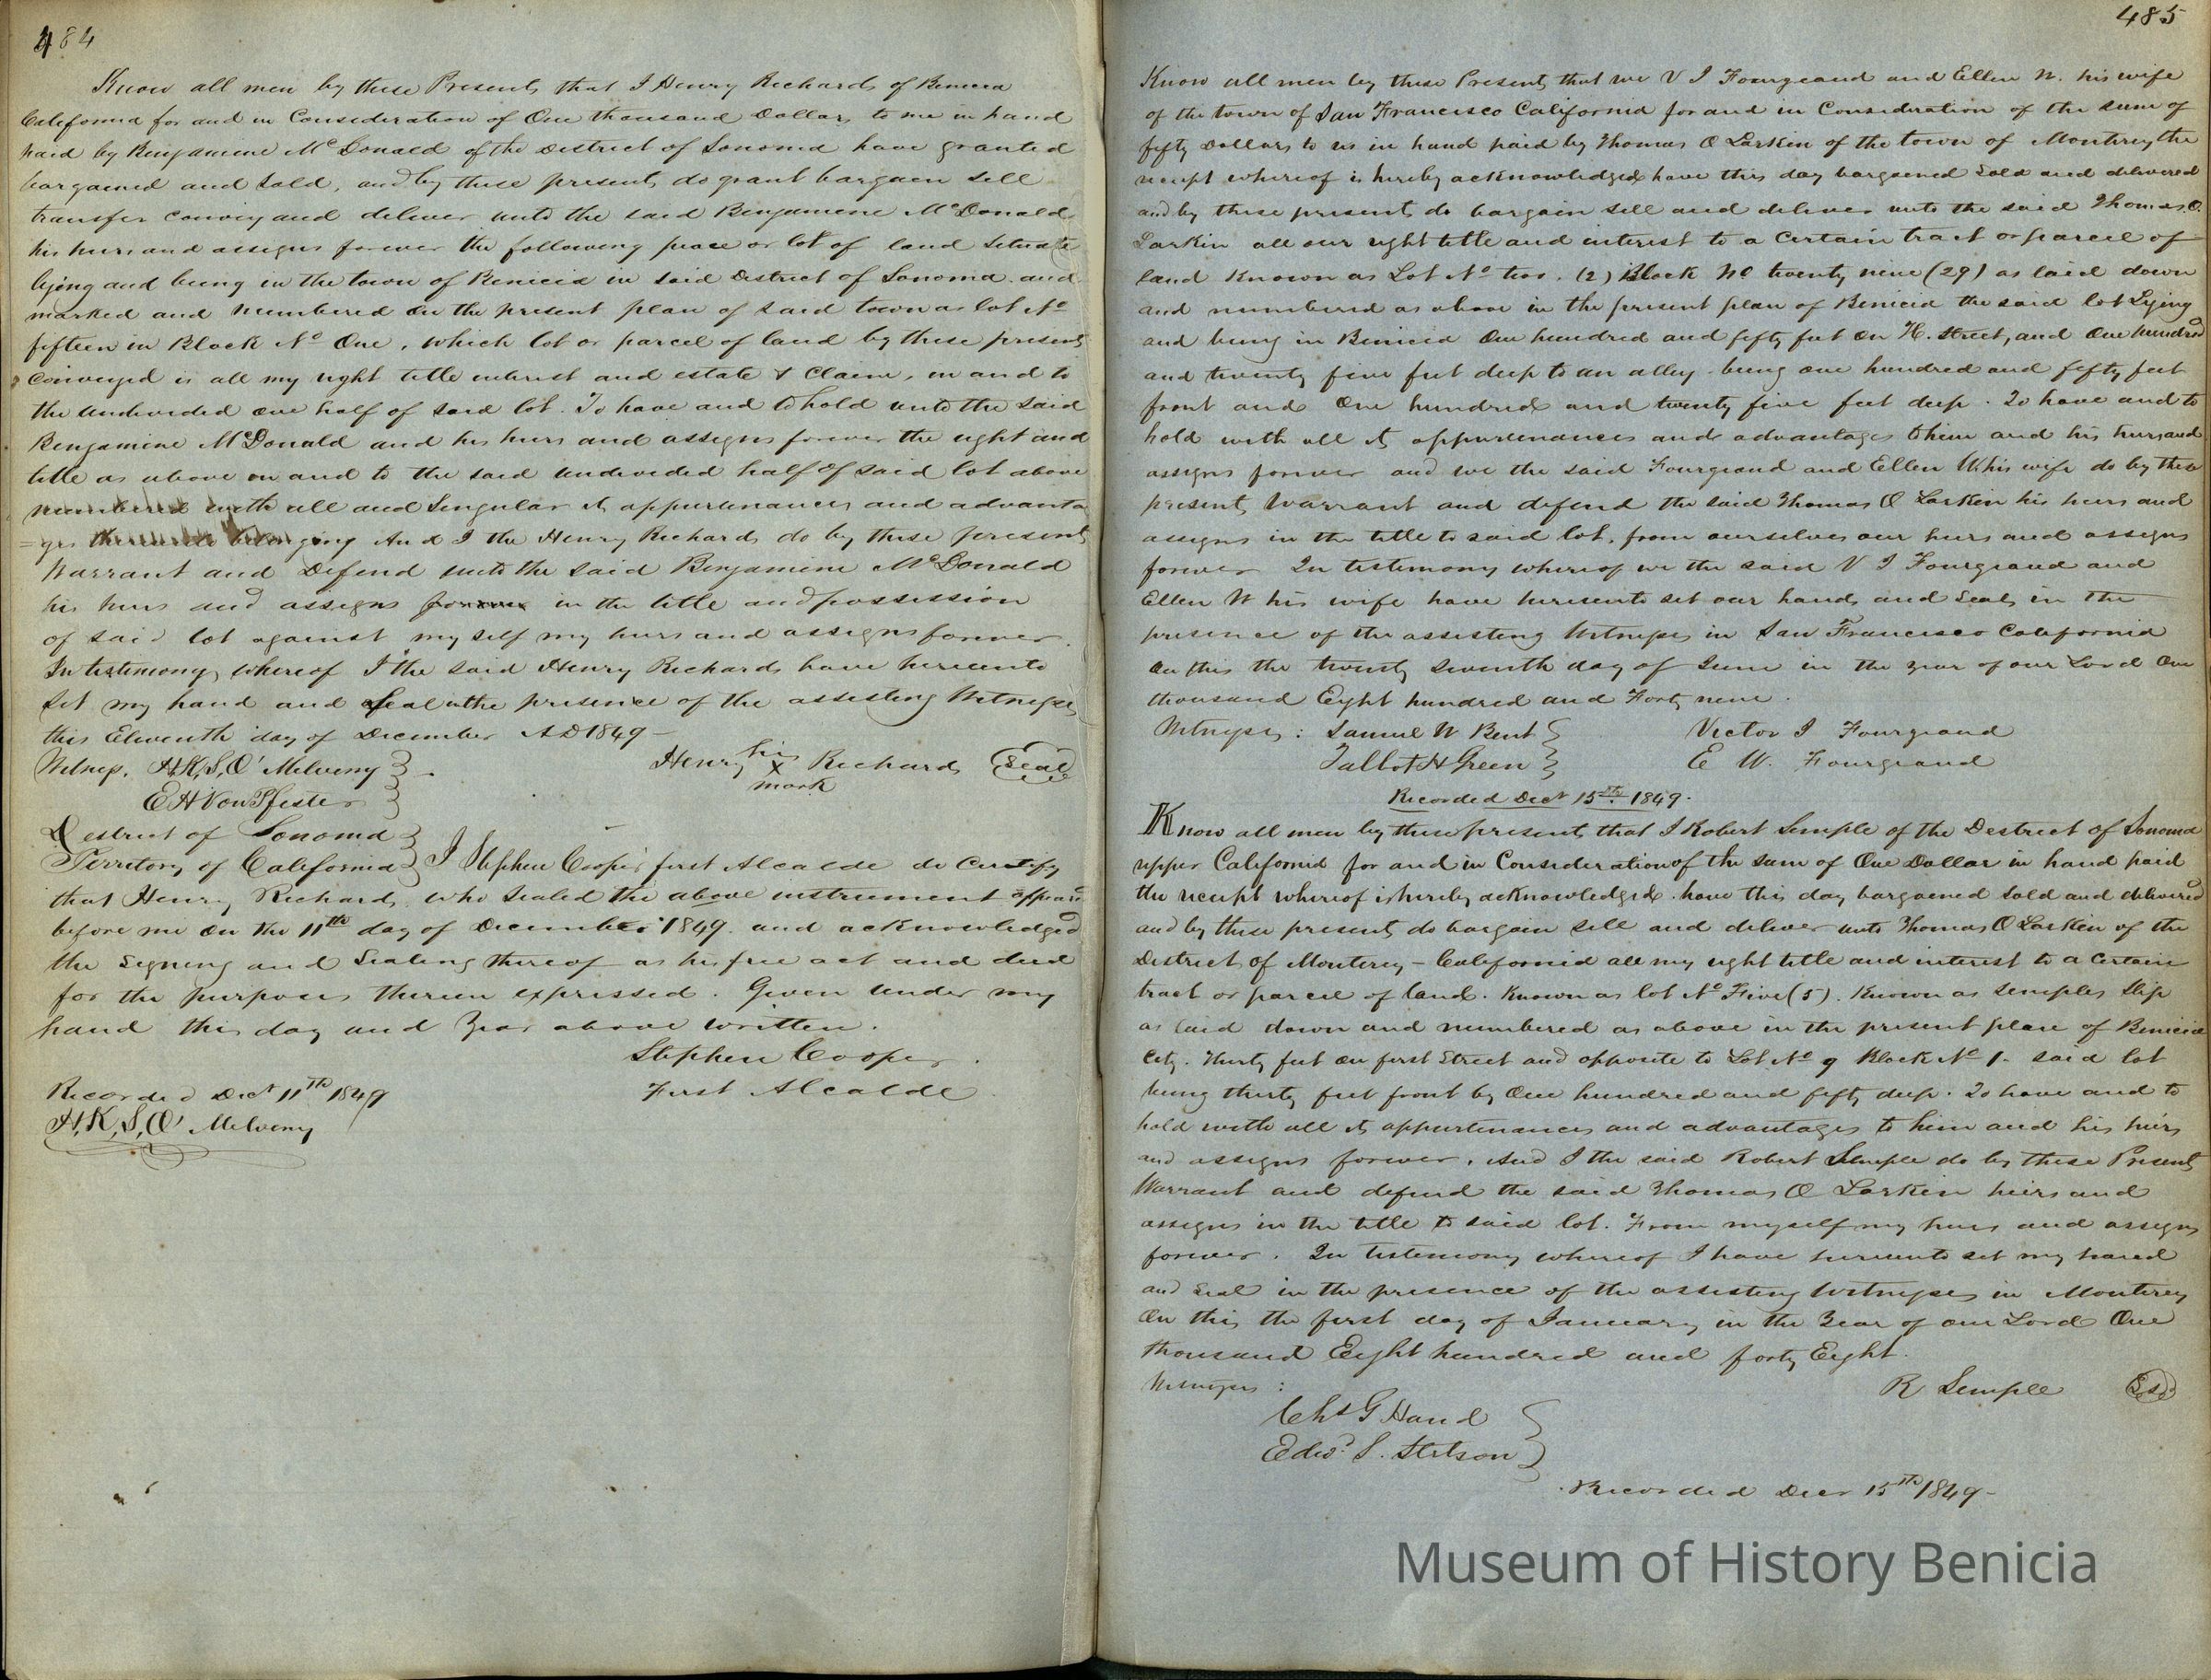 484
Know all men by these Presents that I Henry Richards of Benicia
California for and in Consideration of One thousand Dollars to me in hand
paid by Benjamine McDonald of the District of Sonoma have granted
bargained and sold, and by these presents do grant bargain sell
transfer convey and deliver unto the said Benjamine McDonald
his heirs and assigns forever the following peace or lot of land situate
lying and being in the town of Benicia in said District of Sonoma and
marked and numbered on the present plan of said town as lot No
fifteen in Block No One, which lot or parcel of land by these presents
Conveyed is all my right title interest and estate & Claim, in and to
the undivided one half of said lot. To have and to hold unto the said
Benjamine McDonald and his heirs and assigns forever the right and
title as above on and to the said undivided half of said lot above
numbered with all and Singular its appurtenances and advanta
=ges thereunto belonging And I the Henry Richards do by these presents
Warrant and Defend unto the said Benjamine McDonald
his heirs and assigns forever in the title and possession
of said lot against my self my heirs and assigns forever.
In testimony whereof I the said Henry Richards have hereunto
Set my hand and Seal in the presence of the assisting Witnesses
this Eleventh day of December AD 1849 -
Witness. H,K,S,O'Melveny
E H Von Pfister
Henry his X mark Richards Seal
District of Sonoma
Territory of California I Stephen Cooper first Alcalde do Certify
that Henry Richards who sealed the above instrument appeard
before me on the 11th day of December 1849. and acknowledged
the Signing and Sealing thereof as his free act and deed
for the purposes therein expressed. Given under my
hand this day and Year above written.
Stephen Cooper.
First Alcalde
Recorded Decr 11TH 1849
H,K,S,O' Melveny
485
Know all men by these Presents that we V J Fourgeaud and Ellen W. his wife
of the town of San Francisco California for and in Consideration of the sum of
fifty Dollars to us in hand paid by Thomas O Larkin of the town of Monterey the
receipt whereof is hereby acknowledged have this day bargained Sold and delivered
and by these presents do bargain sell and deliver unto the said Thomas O.
Larkin all our right title and interest to a Certain tract or parcel of
land Known as Lot No two. (2) Block No twenty nine (29) as laid down
and numbered as above in the present plan of Benicia the said lot Lying
and being in Benicia One hundred and fifty feet on H. Street, and One hundred
and twenty five feet deep to an alley being one hundred and fifty feet
front and One hundred and twenty five feet deep. To have and to
hold with all its appurtenances and advantages to him and his heirs and
assigns forever and we the said Fourgeaud and Ellen W his wife do by these
presents Warrant and defend the said Thomas O Larkin his heirs and
assigns in the title to said lot, from ourselves our heirs and assigns
forever In testimony whereof we the said V J Fourgeaud and
Ellen W his wife have hereunto set our hands and Seals in the
presence of the assisting Witnesses in San Francisco California
On this the twenty Seventh day of June in the year of our Lord One
thousand Eight hundred and Forty nine.
Witnesses: Samuel W Bent
Talbot H Green
Victor J Fourgeaud
E W. Fourgeaud
Recorded Decr 15th 1849.
Know all men by these presents that I Robert Semple of the District of Sonoma
upper California for and in Consideration of the sum of One Dollar in hand paid
the receipt whereof is hereby acknowledged. have this day bargained sold and delivered
and by these presents do bargain sell and deliver unto Thomas O Larkin of the
District of Monterey - California all my right title and interest to a Certain
tract or parcel of land. Known as lot No Five (5). Known as Semples Slip
as laid down and numbered as above in the present plan of Benicia
City. Thirty feet on first Street and opposite to Lot No 9 Block No 1. said lot
being thirty feet front by One hundred and fifty deep. To have and to
hold with all its appurtenances and advantages to him and his heirs
and assigns forever. And I the said Robert Semple do by these Presents
Warrant and defend the said Thomas O Larkin heirs and
assigns in the title to said lot. From myself my heirs and assigns
forever. In testimony whereof I have hereunto set my hand
and seal in the presence of the assisting Witnesses in Monterey
On this the first day of January in the Year of our Lord One
thousand Eight hundred and forty Eight.
Witnesses:
R Semple
Chs G Hand
Edwd S. Stetson
Recorded Decr 15TH 1849-
Museum of History Benicia